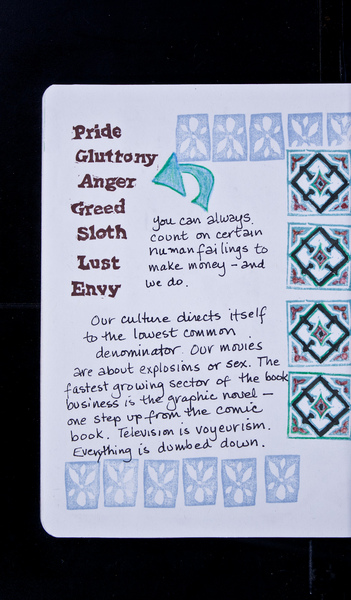 Pride
Gluttony
Anger
Greed
Sloth
Lust
Envy
you can always
count on certain
human failings to
make money - and
we do.
Our culture directs itself
to the lowest common
denominator. Our movies
are about explosions or sex. The
fastest growing sector of the book
business is the graphic novel —
one step up from the comic
book. Television is voyeurism.
Everything is dumbed down.